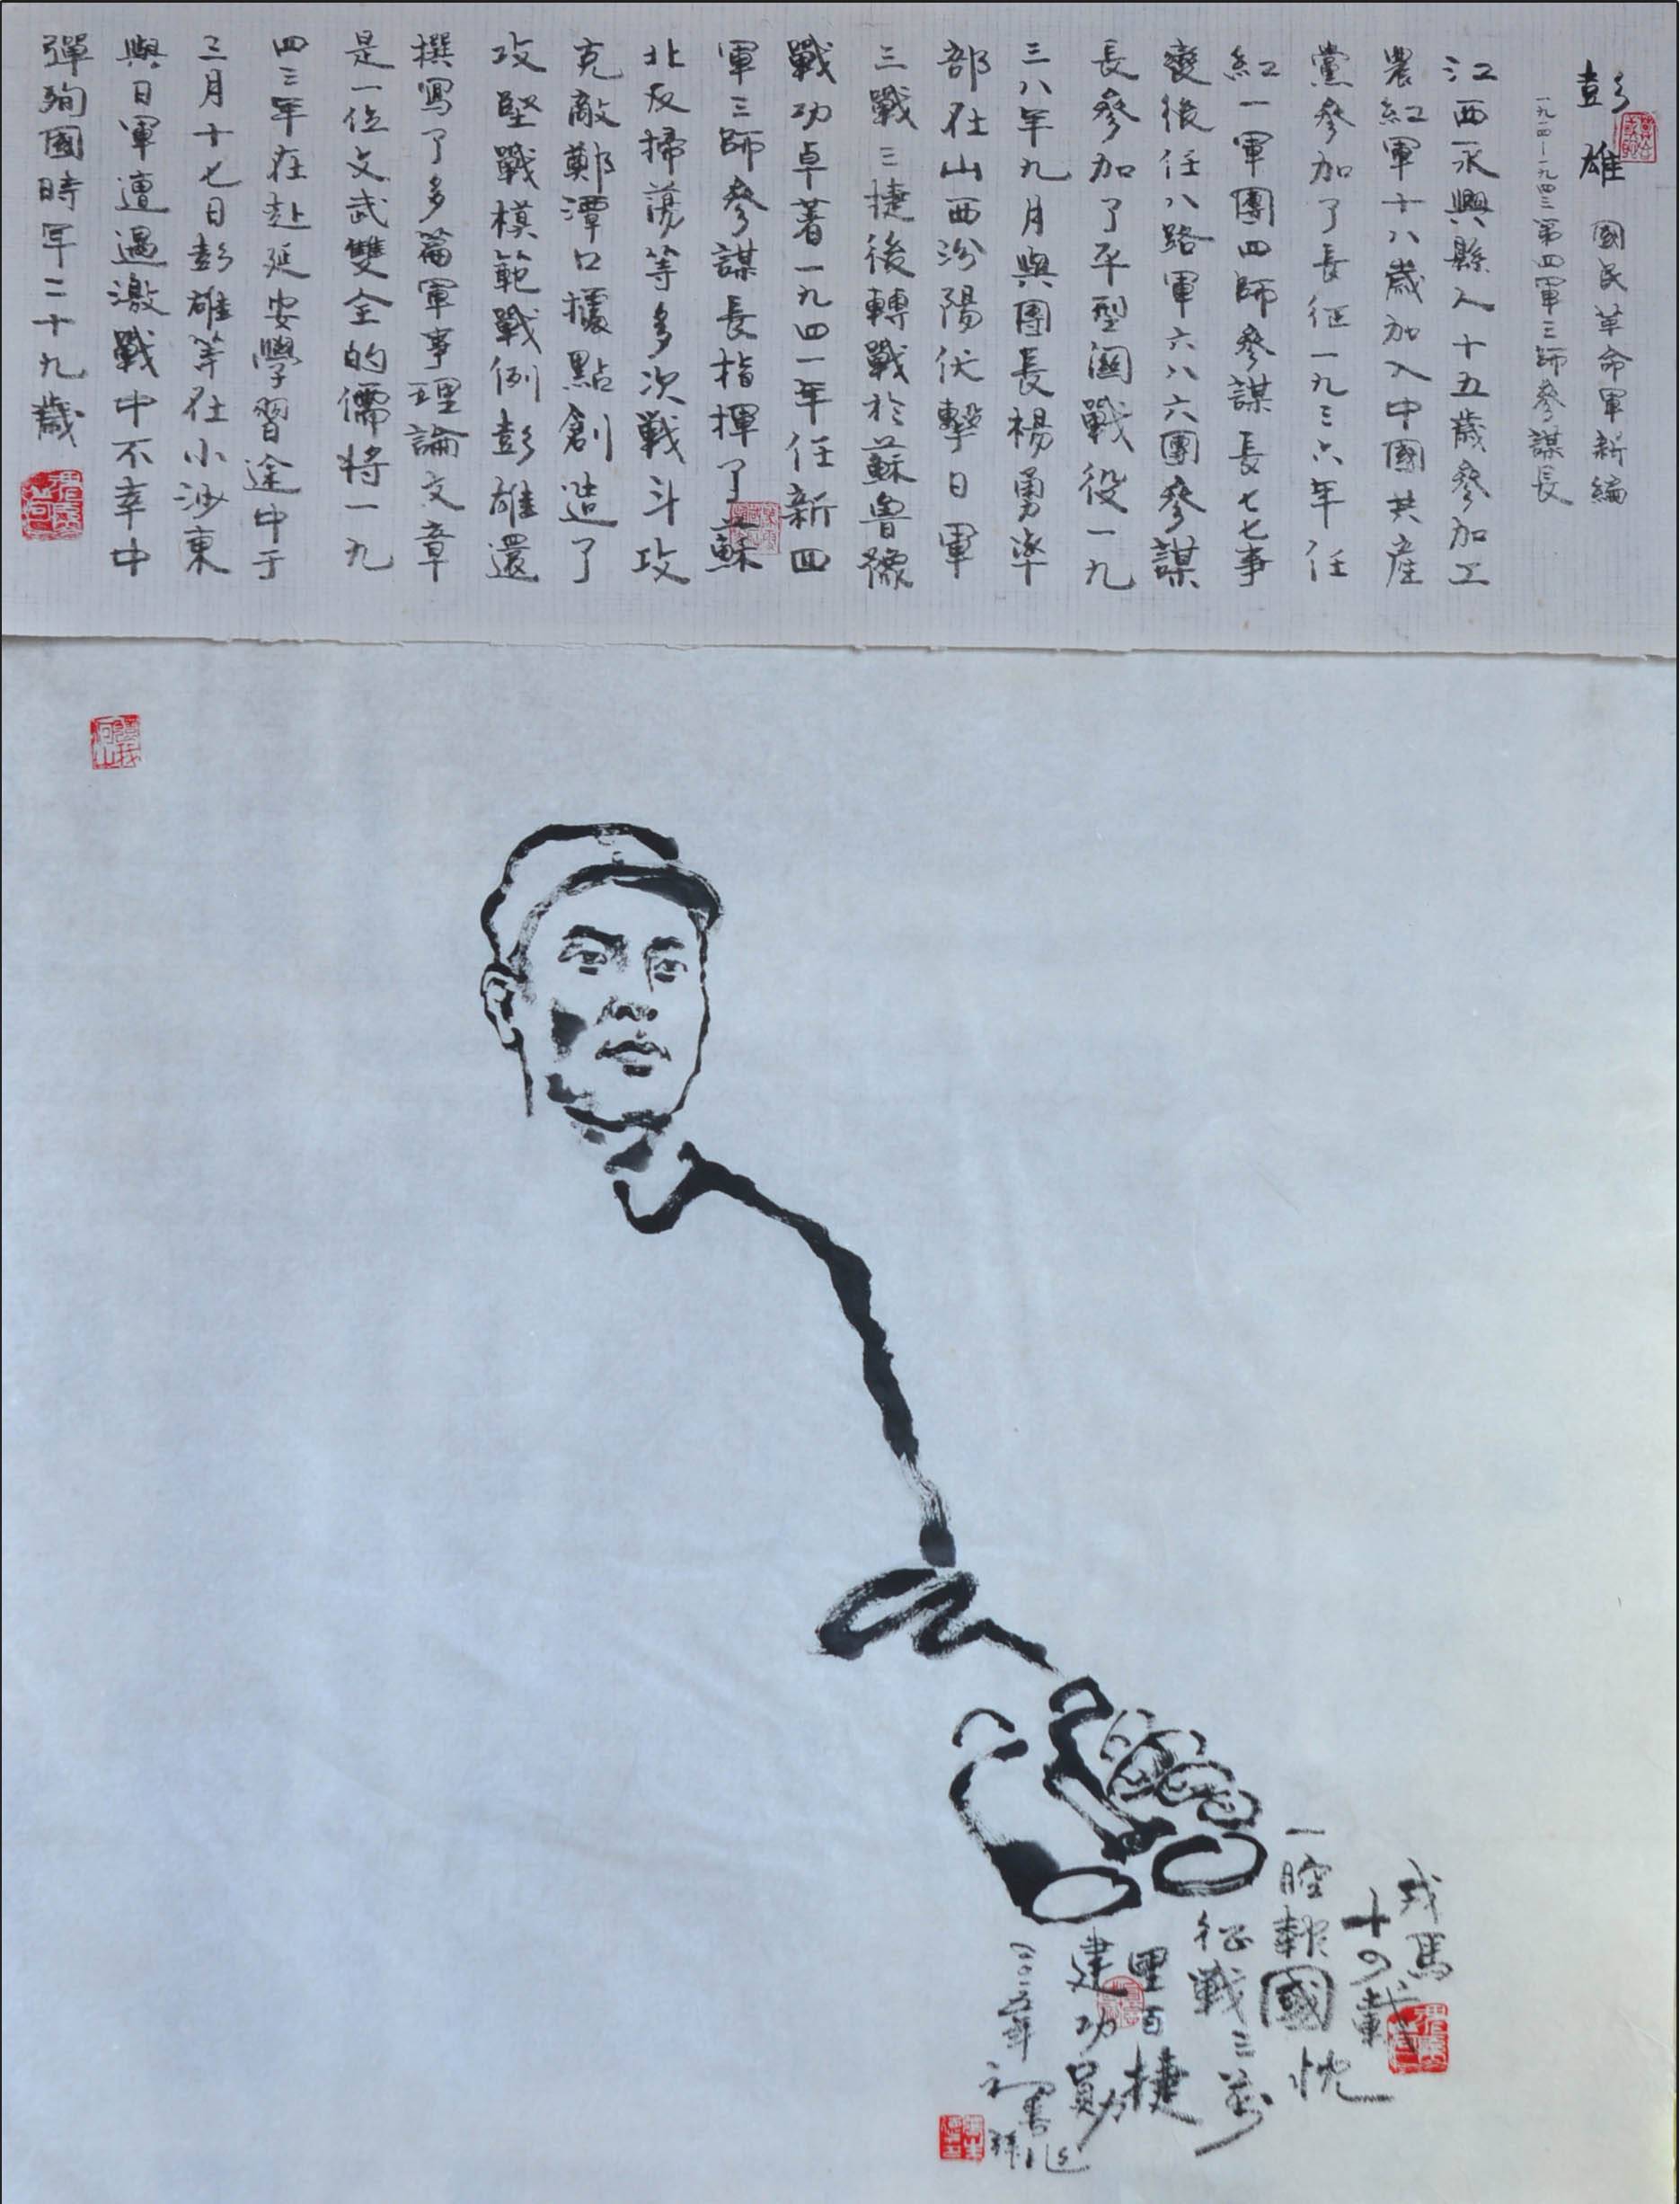 彭雄 國民革命軍新編
一九一四—一九四三第四軍三師參謀長
江西永興縣人十五歲參加工
農紅軍十八歲加入中國共產
黨參加了長征一九三六年任
紅一軍團四師參謀長七七事
變後任八路軍六八六團參謀
長參加了平型關戰役一九
三八年九月與團長楊勇率
部在山西汾陽伏擊日軍
三戰三捷後轉戰於蘇魯豫
戰功卓著一九四一年任新四
軍三師參謀長指揮了蘇
北反掃蕩等多次戰斗攻
克敵鄭潭口據點創造了
攻堅戰模範戰例彭雄還
撰寫了多篇軍事理論文章
是一位文武雙全的儒將一九
四三年在赴延安學習途中于
三月十七日彭雄等在小沙東
與日軍遭遇激戰中不幸中
彈殉國時年二十九歲
戎馬
十四載
一腔報國忱
征戰三萬
里百捷
建功勛
二〇一五年